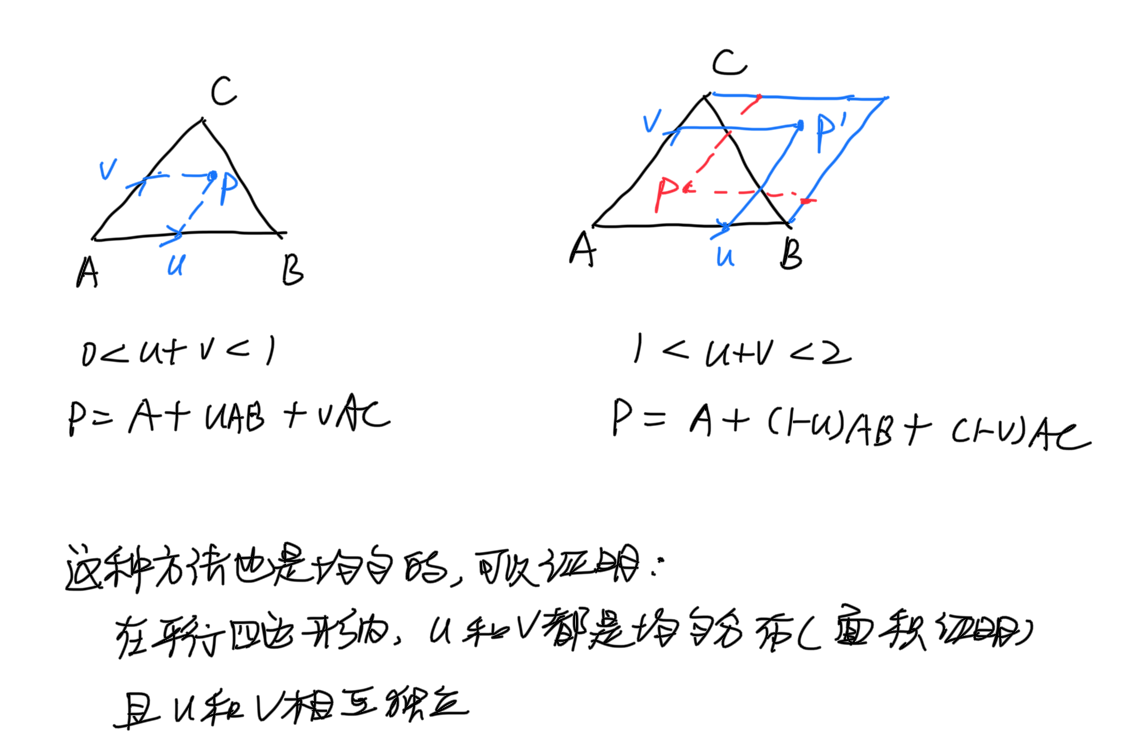 C
V
P
A
u
B
C
V
P'
P
A
u
B
0<u+v<1
P=A+uAB+vAC
1<u+v<2
P=A+(1-u)AB+(1-v)AC
这种方法也是均匀的,可以证明:
在平行四边形内,u和v都是均匀分布(面积证明)
且u和v相互独立